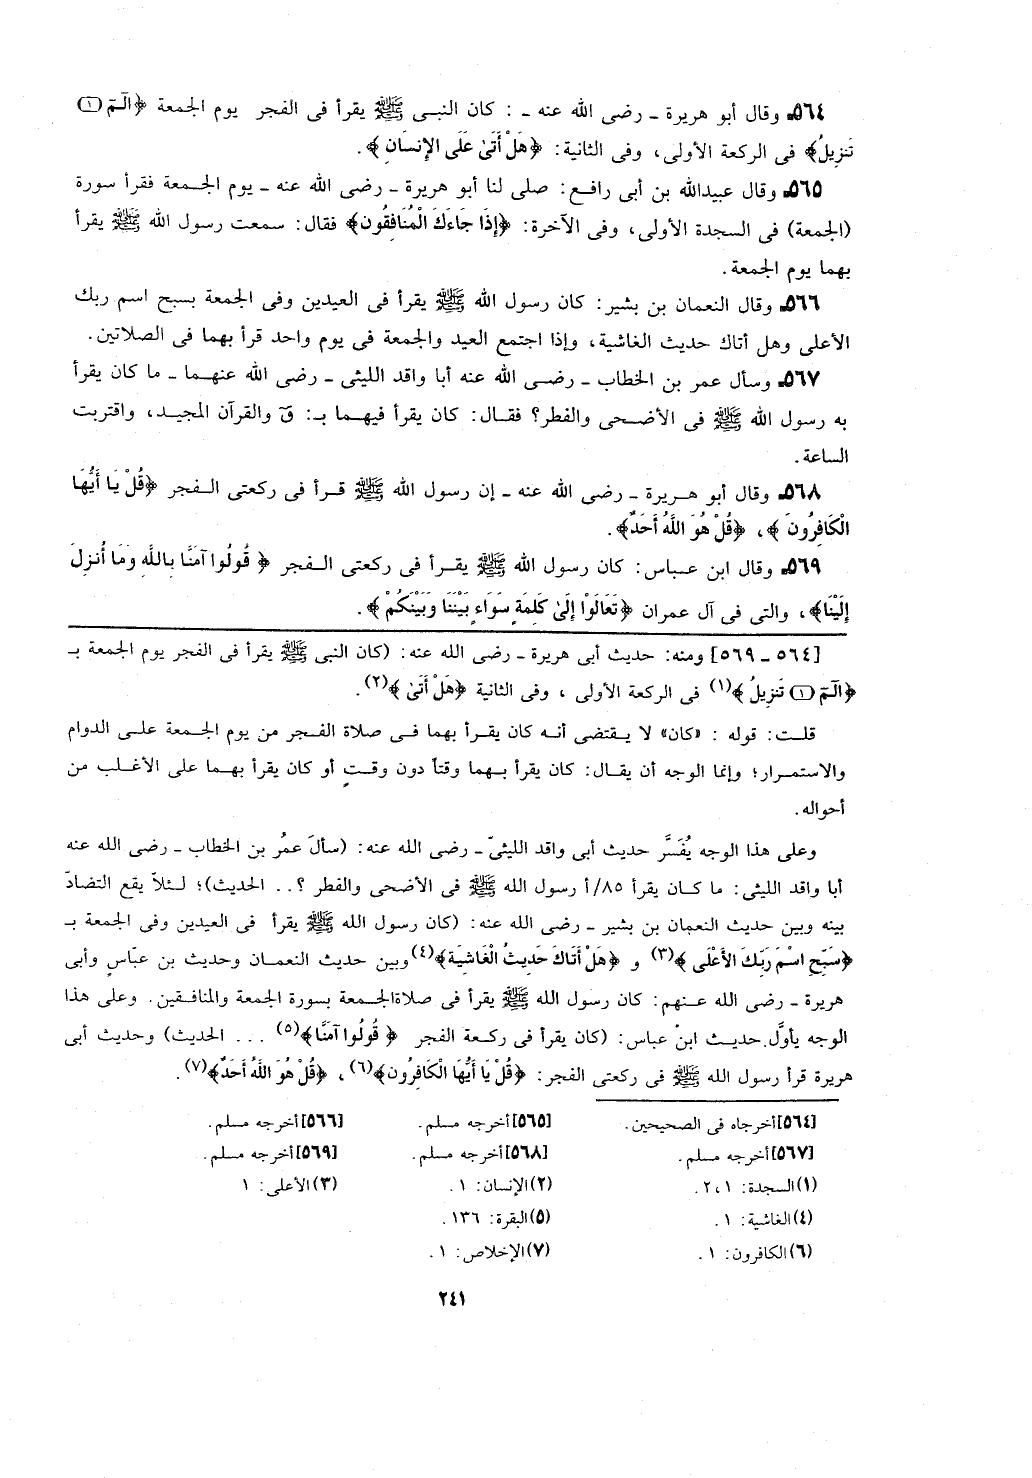 ٥٦٤ـ وقال أبو هريرة ـ رضى الله عنه ـ : كان النبـى ﷺ يقرأ فى الفجر يوم الجمعة ﴿الٓـمٓ ١
تَنزِيلُ﴾ فى الركعة الأولى، وفى الثانية: ﴿هَلْ أَتَىٰ عَلَى الإِنسَانِ﴾.
٥٦٥ـ وقال عبيدالله بن أبى رافع: صلى لنا أبو هريرة ـ رضى الله عنه ـ يوم الجـمعة فقرأ سورة
(الجمعة) فى السجدة الأولى، وفى الآخرة: ﴿إِذَا جَاءَكَ الْمُنَافِقُون﴾ فقال: سمعت رسول الله ﷺ يقرأ
بهما يوم الجمعة.
٥٦٦ـ وقال النعمان بن بشير: كان رسول الله ﷺ يقرأ فى العيدين وفى الجمعة بسبح اسم ربك
الأعلى وهل أتاك حديث الغاشية، وإذا اجتمع العيد والجمعة فى يوم واحد قرأ بهما فى الصلاتين.
٥٦٧ـ وسأل عمر بن الخطاب ـ رضـى الله عنه أبا واقد الليثى ـ رضى الله عنهـما ـ ما كان يقرأ
به رسول الله ﷺ فى الأضـحى والفطر؟ فقـال: كان يقرأ فيهـما بـ: قٓ والقرآن المجيـد، واقتربت
الساعة.
٥٦٨ـ وقال أبو هـريرة ـ رضى الله عنه ـ إن رسول الله ﷺ قـرأ فى ركعتى الـفجر ﴿قُلْ يَا أَيُّهَا
الْكَافِرُونَ﴾، ﴿قُلْ هُوَ اللَّهُ أَحَدٌ﴾.
٥٦٩ـ وقال ابن عـباس: كان رسول الله ﷺ يقـرأ فى ركعتى الـفجر ﴿قُولُوا آمَنَّا بِاللَّهِ وَمَا أُنزِلَ
إِلَيْنَا﴾، والتى فى آل عمران ﴿تَعَالَوْا إِلَىٰ كَلِمَةٍ سَوَاءٍ بَيْنَنَا وَبَيْنَكُمْ﴾.
[٥٦٤ ـ ٥٦٩] ومنه: حديث أبى هريرة ـ رضى الله عنه: (كان النبى ﷺ يقرأ فى الفجر يوم الجمعة بـ
﴿الٓـمٓ ١ تَنزِيلُ﴾(١) فى الركعة الأولى ، وفى الثانية ﴿هَلْ أَتَىٰ﴾(٢).
قلـت: قوله : «كان» لا يـقتضى أنـه كان يقـرأ بهما فـى صلاة الفـجر من يوم الجـمعة علـى الدوام
والاستمـرار؛ وإنما الوجه أن يقـال: كان يقرأ بـهما وقتاً دون وقـتٍ أو كان يقرأ بهـما على الأغلـب من
أحواله.
وعلى هذا الوجه يُفَسَّر حديث أبى واقد الليثىّ ـ رضى الله عنه: (سألَ عمرُ بن الخطاب ـ رضى الله عنه
أبا واقد الليثى: ما كـان يقرأ ٨٥/أ رسول الله ﷺ فى الأضحى والفطر ؟.. الحديث)؛ لـئلاّ يقع التضادّ
بينه وبين حديث النعمان بن بشير ـ رضى الله عنه: (كان رسول الله ﷺ يقرأ فى العيدين وفى الجمعة بـ
﴿سَبِّحِ اسْمَ رَبِّكَ الأَعْلَى﴾(٣) و ﴿هَلْ أَتَاكَ حَدِيثُ الْغَاشِيَة﴾(٤) وبين حديث النعمـان وحديث بن عبّاسٍ وأبى
هريرة ـ رضى الله عـنهم: كان رسول الله ﷺ يقرأ فى صلاةالجـمعة بسورة الجمعة والمنافـقين. وعلى هذا
الوجه يأوّل حديـث ابنْ عباس: (كان يقرأ فى ركـعة الفجر ﴿قُولُوا آمَنَّا﴾(٥) ... الحديث) وحديث أبى
هريرة قرأ رسول الله ﷺ فى ركعتى الفجر: ﴿قُلْ يَا أَيُّهَا الْكَافِرُون﴾(٦)، ﴿قُلْ هُوَ اللَّهُ أَحَدٌ﴾(٧).
[٥٦٤] أخرجاه فى الصحيحين. [٥٦٥] أخرجه مسلم. [٥٦٦] أخرجه مسلم.
[٥٦٧] أخرجه مسلم. [٥٦٨] أخرجه مسلم. [٥٦٩] أخرجه مسلم.
(١) السجدة: ١، ٢. (٢) الإنسان: ١. (٣) الأعلى: ١
(٤) الغاشية: ١. (٥) البقرة: ١٣٦.
(٦) الكافرون: ١. (٧) الإخلاص: ١.
٢٤١